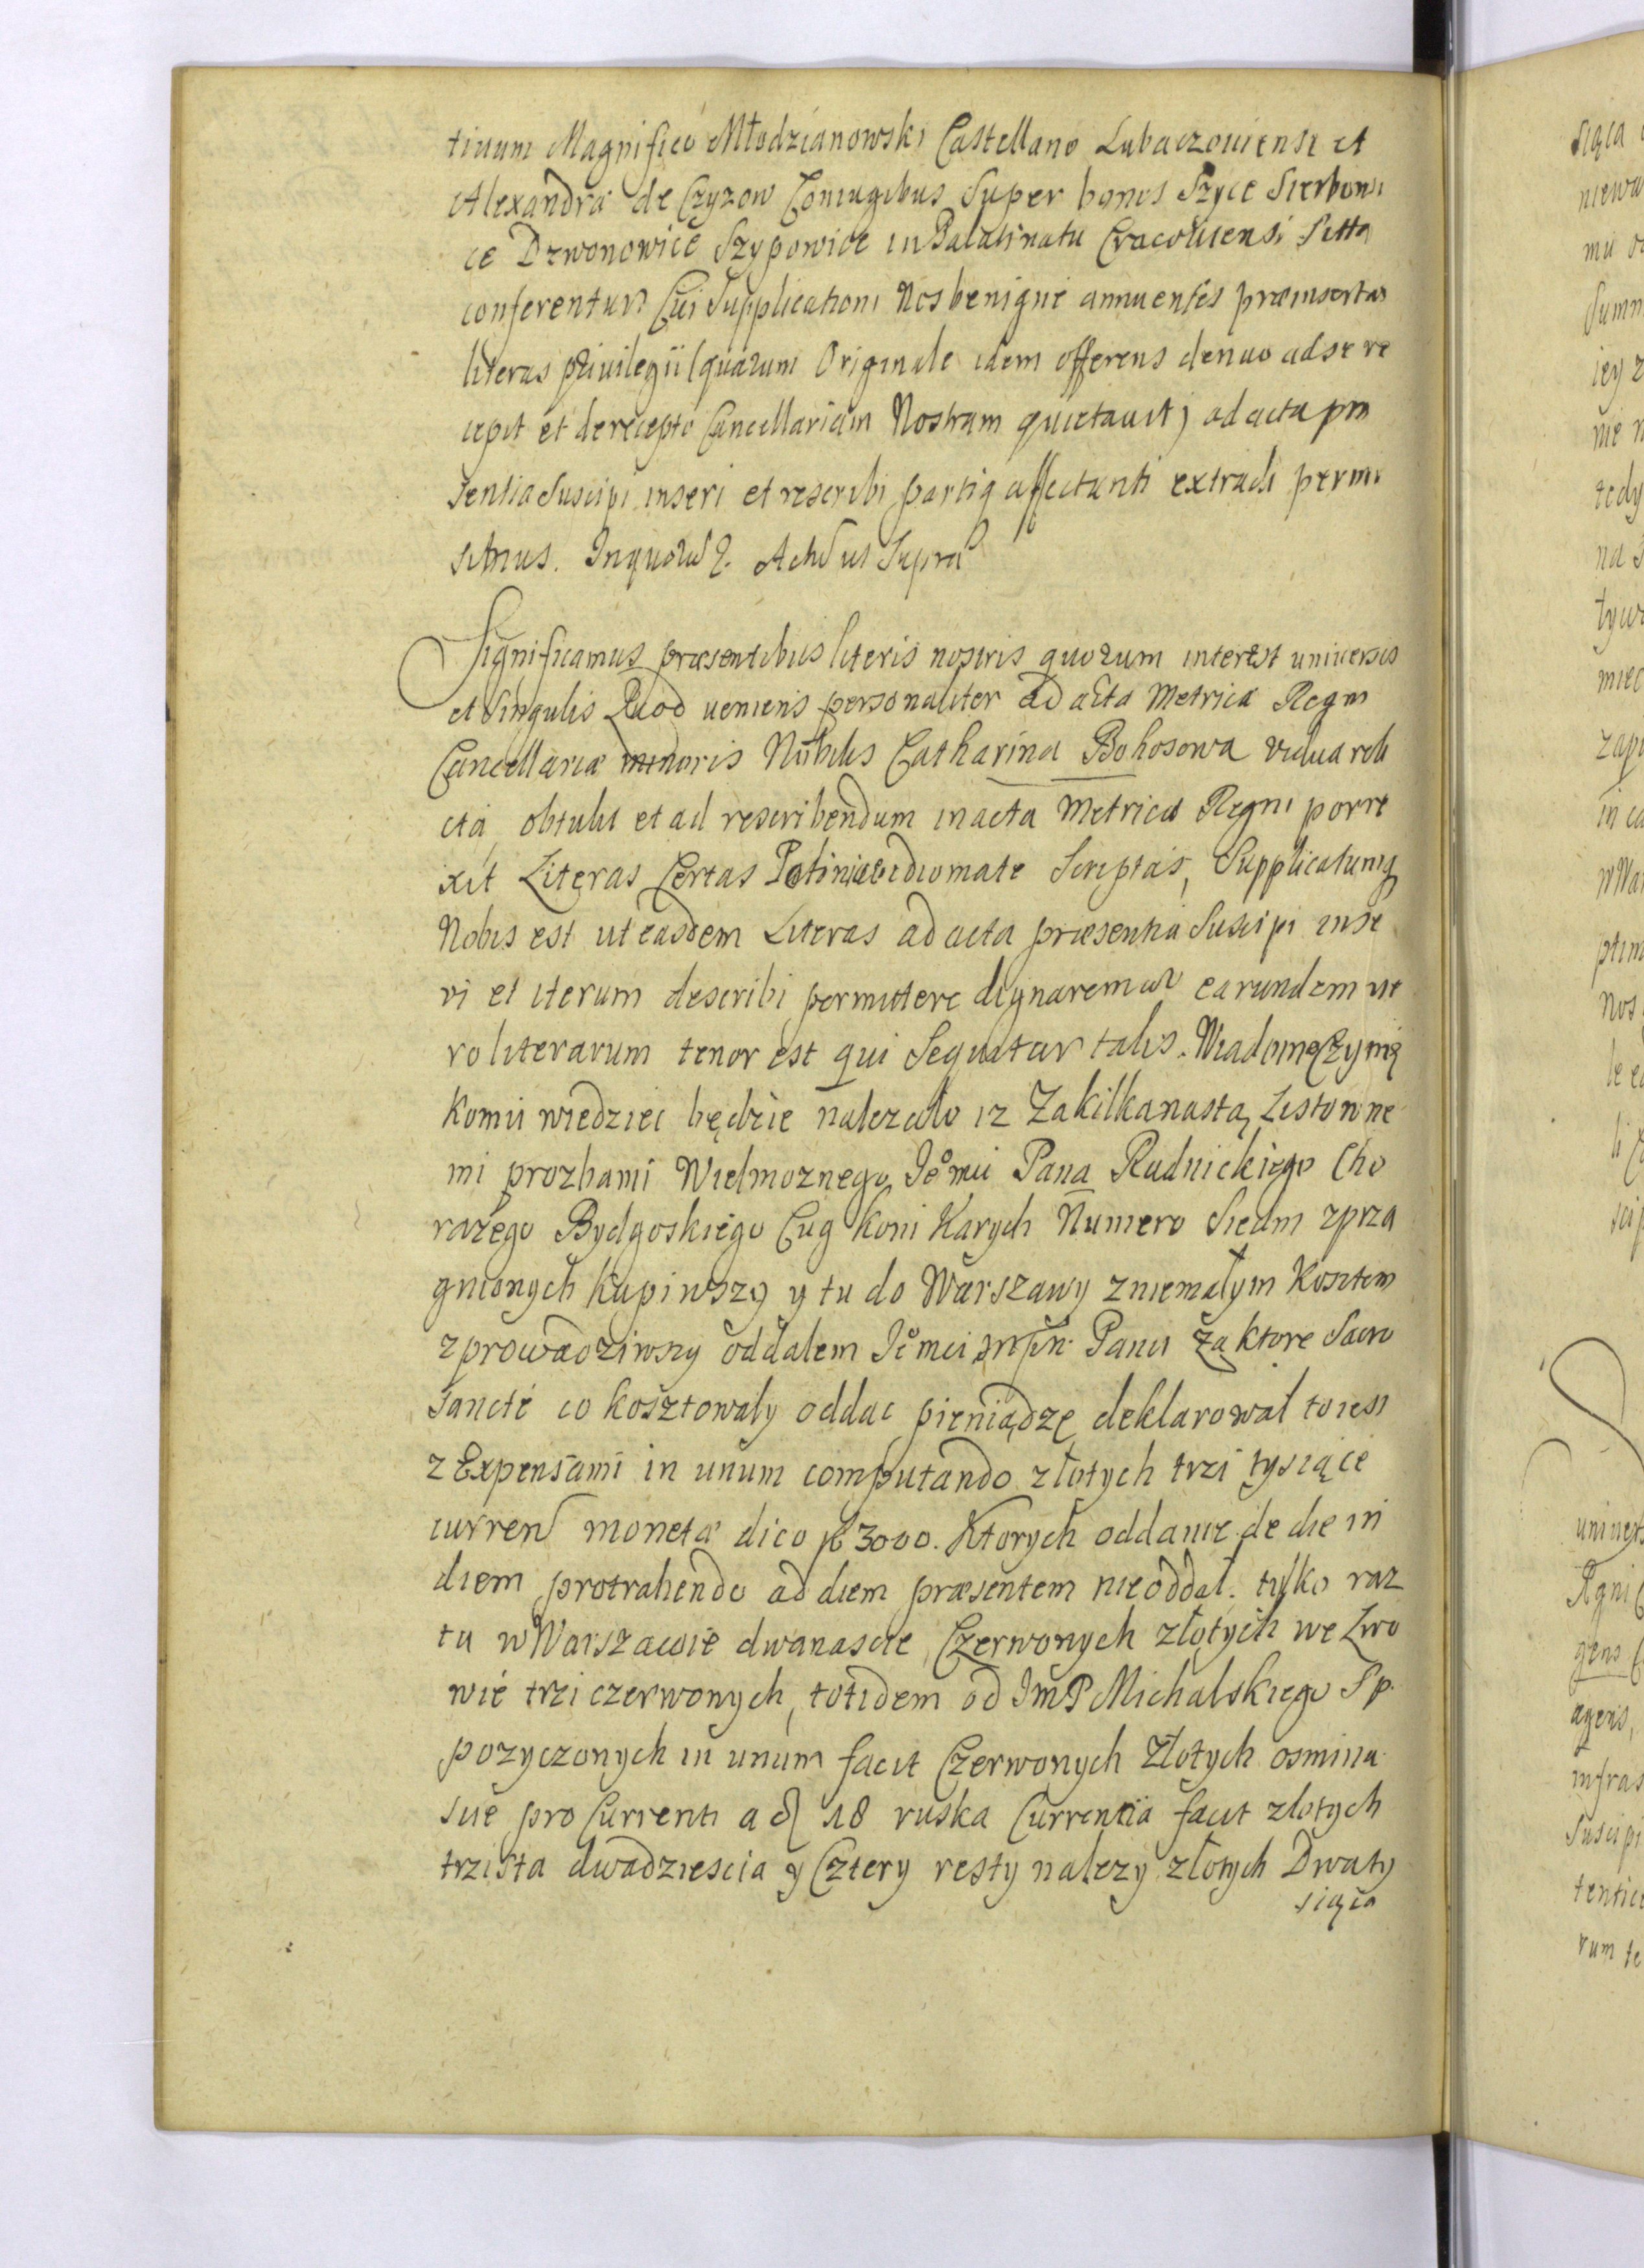 tiuum Magnifico Młodzianowski Castellano Lubaczouiensi et
Alexandra de Czyzow Coniugibus Super bonis Szyce Sierboni
ce Dzwonowice Szypowice in Palatinatu Cracouiensi Sitta
conferentur. Cui Supplicationi Nos benigne annuentes præinsertas
literas priuilegii (quarum Originale idem offerens denuo ad se re
cepit et de recepto Cancellariam Nostram quietauit) ad acta præ
sentia Suscipi inseri et rescribi partiq affectanti extradi permi
simus. In quorũ Actũ ut Supra
Significamus præsentibus literis nostris quorum interest uniuersis
et Singulis Quod ueniens personaliter ad acta Metricæ Regni
Cancellariæ minoris Nobilis Catharina Bohosowa vidua reli
cta, obtulit et ad rescribendum in acta Metrices Regni porre
xit Literas Certas Polinico idiomate Scriptas, Supplicatumq
Nobis est ut easdem Literas ad acta præsentia Suscipi inse
ri et iterum describi permittere dignaremur earundem ue
ro literarum tenor est qui Sequitur talis. Wiadomo Czynię
Komu wiedziec będzie nalezało iz Zakilkanastą Listowne
mi prozbami Wielmoznego Jeomci Pana Rudnickiego Cho
rązego Bydgoskiego Cug Koni Karych Numero Siedm zprzą
gnionych kupiwszy y tu do Warszawy z niemałym Kosztem
zprowadziwszy oddałem Jeomci Panu za ktore Sacro
sancte co kosztowały oddac pieniądze deklarował to iest
z Expensami in unum computando złotych trzi tysiące
curren moneta dico fl 3000. Ktorych oddanie de die in
diem protrahendo ad diem præsentem nieoddał. tylko raz
tu w Warszawie dwanascie Czerwonych złotych we Lwo
wie trzi czerwonych, totidem od ImP Michalskiego Sp.
pozyczonych in unum facit Czerwonych Złotych osmina
scie pro Currenti a fl 18 ruska Currentia facit złotych
trzista dwadziescia y Cztery resty nalezy złotych Dwaty
siąca